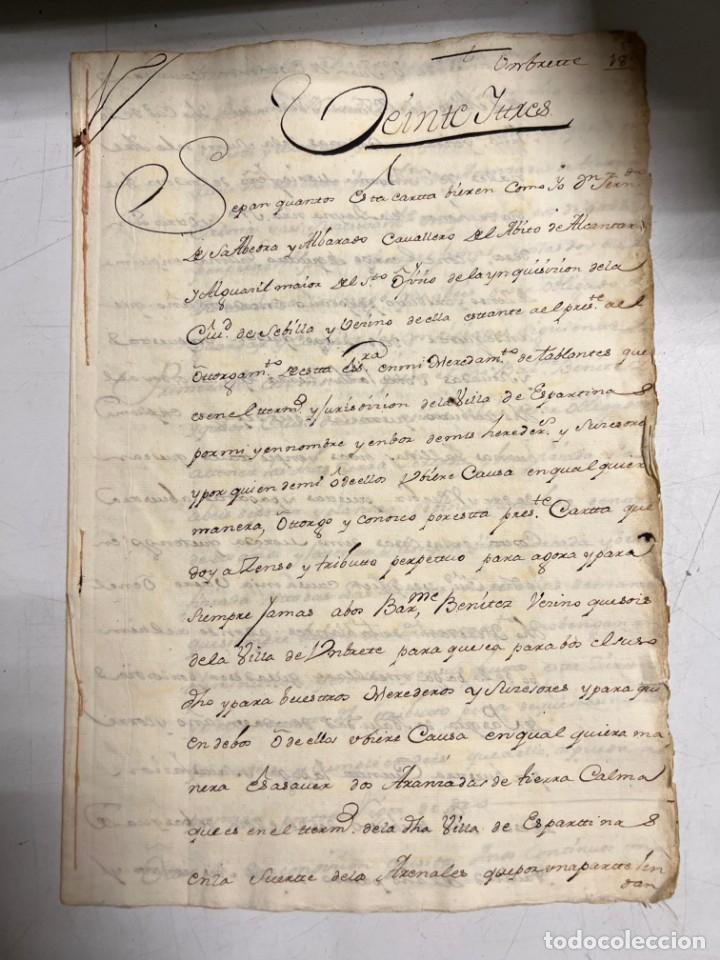 Onbrette 18
Veinte Ittres
Sepan quantos Esta cartta bieren Como Yo Dn fern.do
de SaAbedra y Albarado Cavallero del Abito de Alcantar
y Alguasil maior del S.to ofiçio de la ynquisiçion de la
Ciu.d de Sebilla y Veçino de ella estante a el pres.te a el
Ottorgam.to de estta Ess.ra en mi Heredam.to de tablantes que
es en el tterm.o y Jurisdiçion de la Villa de Espartina s
por mi y en nombre y en boz de mis hereder.s y Suzesore
y por quien de mi o de ellos Ubiere Causa en qual quier
manera, Ottorgo y conosco por estta pres.te Cartta que
doy a Zenso y tributto perpettuo para agora y para
siempre Jamas a bos Bar.me Benitez Vezino que sois
de la Villa de Unbrete para que sea para bos el suso
dho y para buestros Herederos y Suzesores y para qu
en de bos o de ellos ubiere Causa en qual quiera ma
nera Es a saver dos Aranzadas de tierra Calma
que es en el tterm.o de la dha Villa de Esparttina s
en la Suertte de los Arenales que por una partte lin
dan
todocoleccion
todocoleccion.net